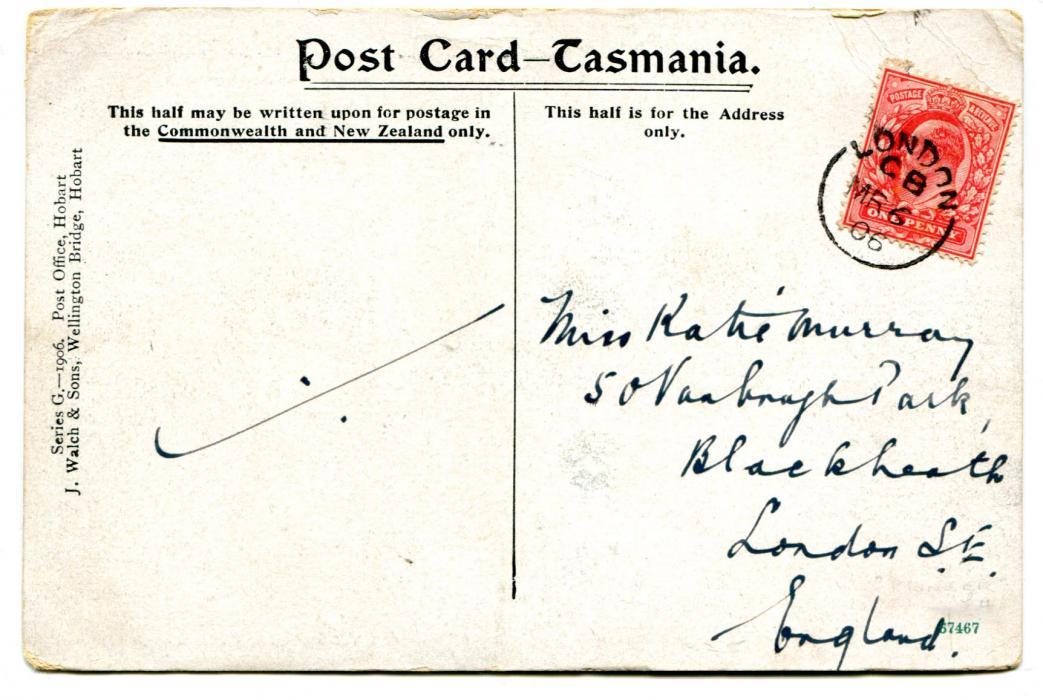 Post Card—Tasmania.
This half may be written upon for postage in
the Commonwealth and New Zealand only.
This half is for the Address
only.
Series G.—1906. Post Office, Hobart
J. Walch & Sons, Wellington Bridge, Hobart
POSTAGE
ONE PENNY
LONDON
CB
MR 6
06
Miss Katie Murray
50 Vanbrugh Park,
Blackheath
London S.E.
England.
67467